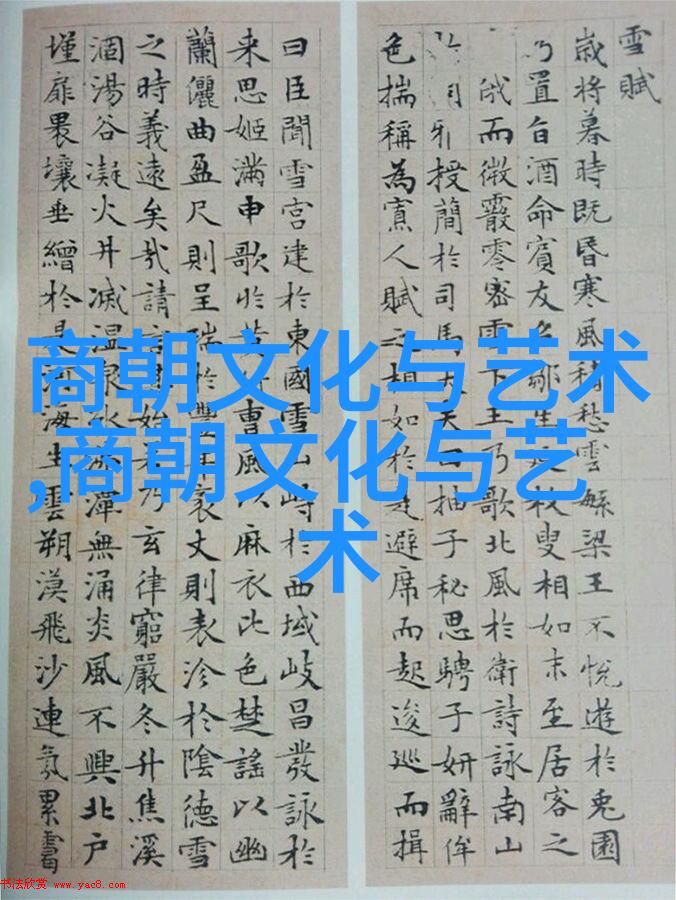 雪賦
歲將暮時既昏寒風積愁雲繁梁王不悅遊於兔園
乃置旨酒命賓友召鄒生延枚叟相如末至居客之
俄而微霰零密雪下王乃歌北風於衛詩詠南山
雅授簡於司馬大夫曰抽子秘思騁子妍辭侔
色揣稱為寡人賦之相如於是避席而起逡巡而揖
曰臣聞雪宮建於東國雪山峙於西域岐昌發詠於
来思姬滿申歌於黃竹曹風以麻衣比色楚謠以幽
蘭儷曲盈尺則呈瑞於豐年袤丈則表沴於陰德雪
之時義遠矣哉請言其始若乃玄律窮嚴冬升焦溪
涸湯谷凝火井滅溫泉冰沸潭無涌炎風不興北戶
墐扉壤垂繒於是河海生雲朔漠飛沙連氛累靄
商朝文化与艺术
,商朝文化与艺
术
书法欣赏 www.yac8.com